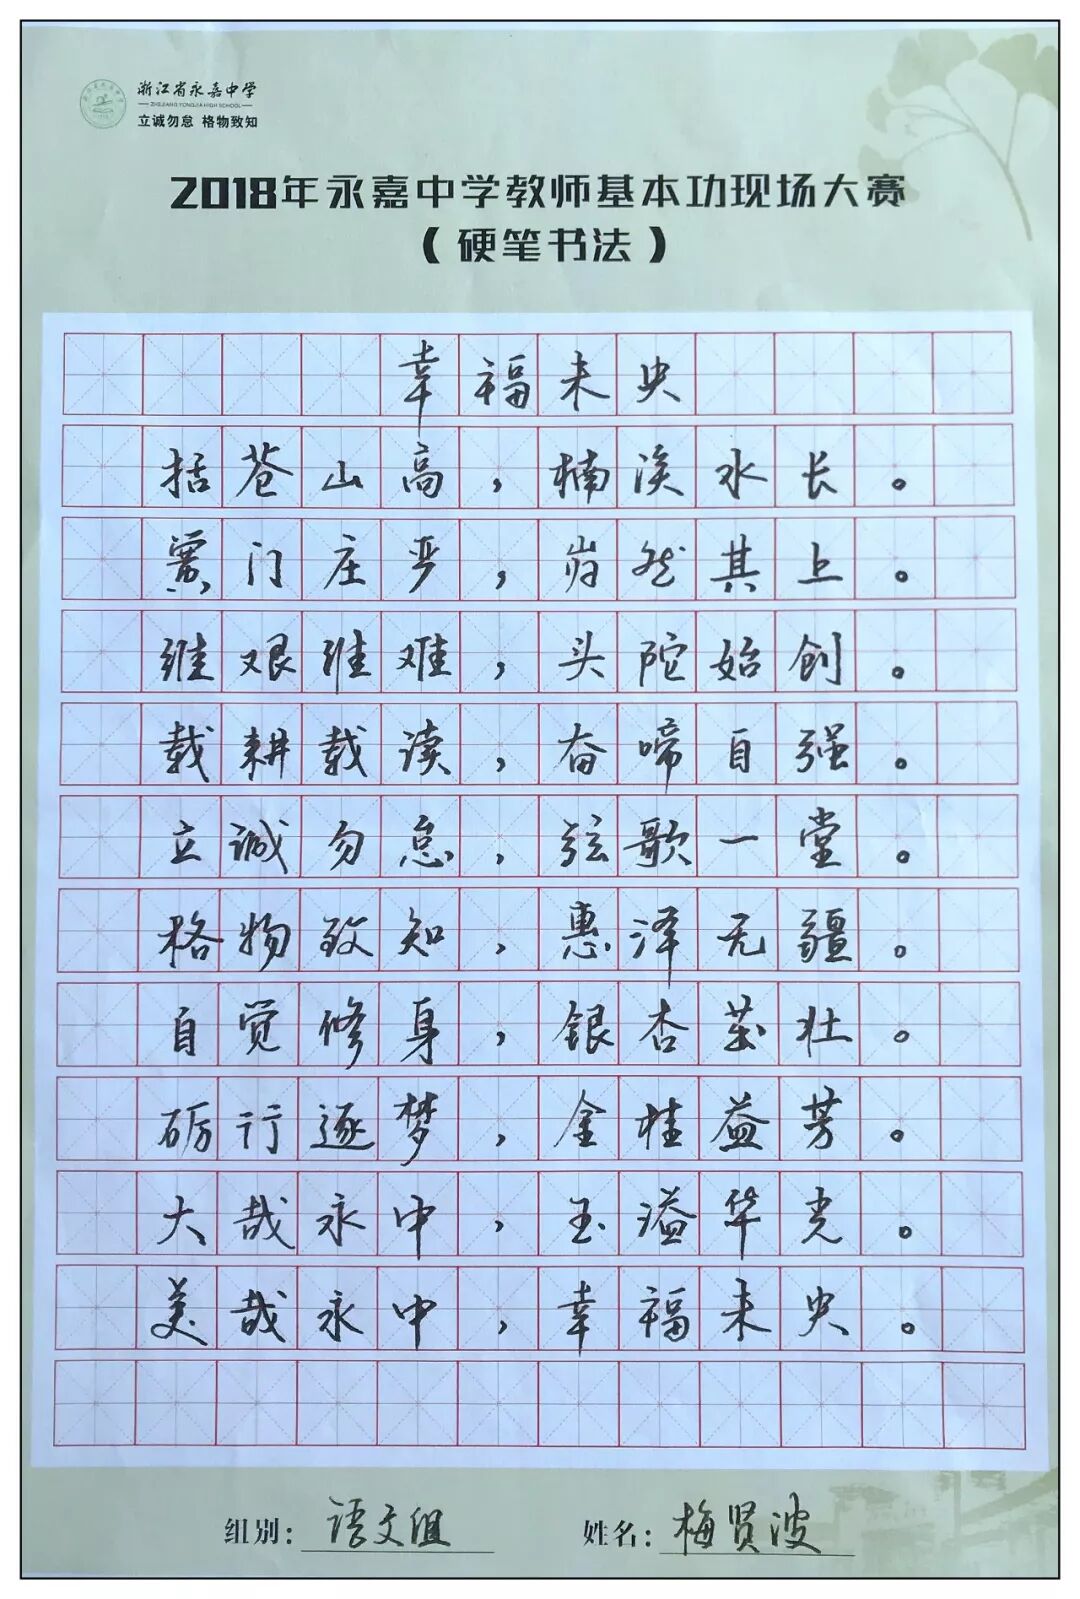 浙江省永嘉中学
ZHEJIANG YONGJIA HIGH SCHOOL
立诚勿怠 格物致知
2018年永嘉中学教师基本功现场大赛
（硬笔书法）
幸福未央
括苍山高，楠溪水长。
黉门庄严，岿然其上。
维艰维难，头陀始创。
载耕载读，奋啼自强。
立诚勿怠，弦歌一堂。
格物致知，惠泽无疆。
自觉修身，银杏茁壮。
砺行逐梦，金桂益芳。
大哉永中，玉溢华光。
美哉永中，幸福未央。
组别：语文组 姓名：梅贤波